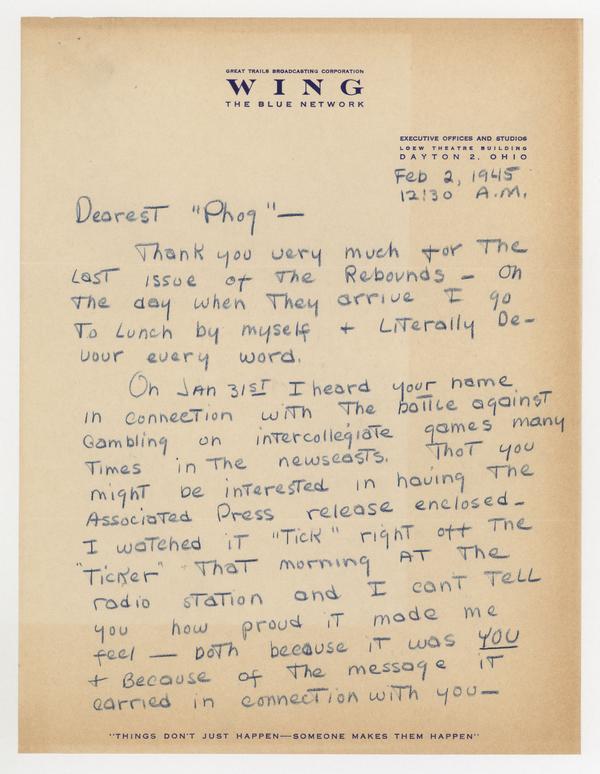 GREAT TRAILS BROADCASTING CORPORATION
WING
THE BLUE NETWORK
EXECUTIVE OFFICES AND STUDIOS
LOEW THEATRE BUILDING
DAYTON 2, OHIO
Feb 2, 1945
12:30 A.M.
Dearest "Phog" —
Thank you very much for The
Last issue of the Rebounds - On
the day when They arrive I go
To Lunch by myself + Literally De-
vour every word.
On JAN 31ST I heard your name
in connection with The battle against
Gambling on intercollegiate games many
Times in The newscasts. Thot you
might be interested in having The
Associated Press release enclosed-
I watched iT "Tick" right off The
"Ticker" That morning AT The
radio station and I can't Tell
you how proud iT made me
feel — both because iT was YOU
+ Because of The message iT
carried in connection with you—
"THINGS DON'T JUST HAPPEN—SOMEONE MAKES THEM HAPPEN"